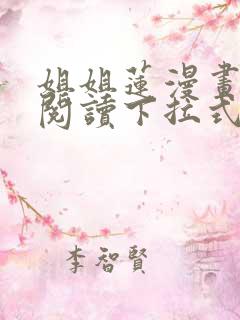 姐姐蓮漫畫
閱讀下拉式
李智賢